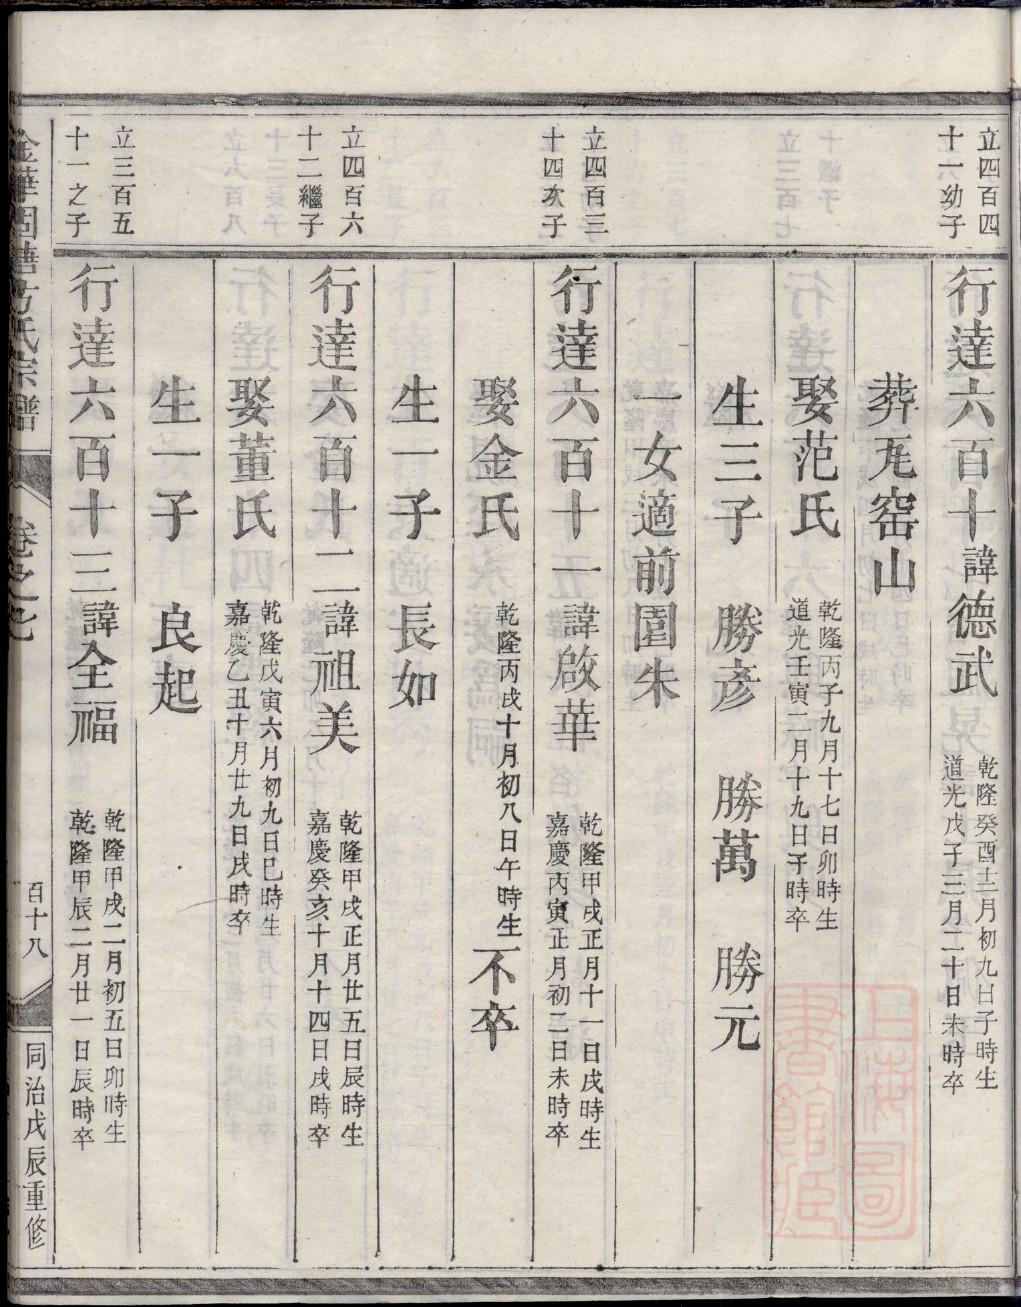 立四百四
十一幼子
行達六百十諱德武
乾隆癸酉十二月初九日子時生
道光戊子三月二十日未時卒
葬瓦窑山
娶范氏
乾隆丙子九月十七日卯時生
道光壬寅二月十九日子時卒
生三子 勝彦 勝萬 勝元
一女適前園朱
立四百三
十四次子
行達六百十一諱啟華
乾隆甲戌正月十一日戌時生
嘉慶丙寅正月初二日未時卒
娶金氏
乾隆丙戌十月初八日午時生
不卒
生一子 長如
立四百六
十二繼子
行達六百十二諱祖美
乾隆甲戌正月廿五日辰時生
嘉慶癸亥十月十四日戌時卒
娶董氏
乾隆戊寅六月初九日巳時生
嘉慶乙丑十月廿九日戌時卒
生一子 良起
立三百五
十一之子
行達六百十三諱全福
乾隆甲戌二月初五日卯時生
乾隆甲辰二月廿一日辰時卒
金華國塘方氏宗譜
卷之七
百十八
同治戊辰重修
上海圖書館藏